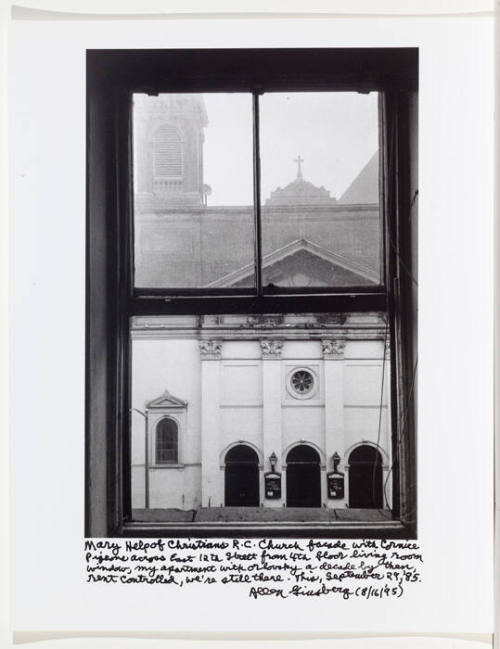 Mary Help of Christians R.C. Church facade with Cornice
Pigeons across East 12th Street from 4th floor living room
window, my apartment with Orlovsky a decade by then,
rent controlled, we're still there. This, September 29, '85.
Allen Ginsberg (8/16/95)